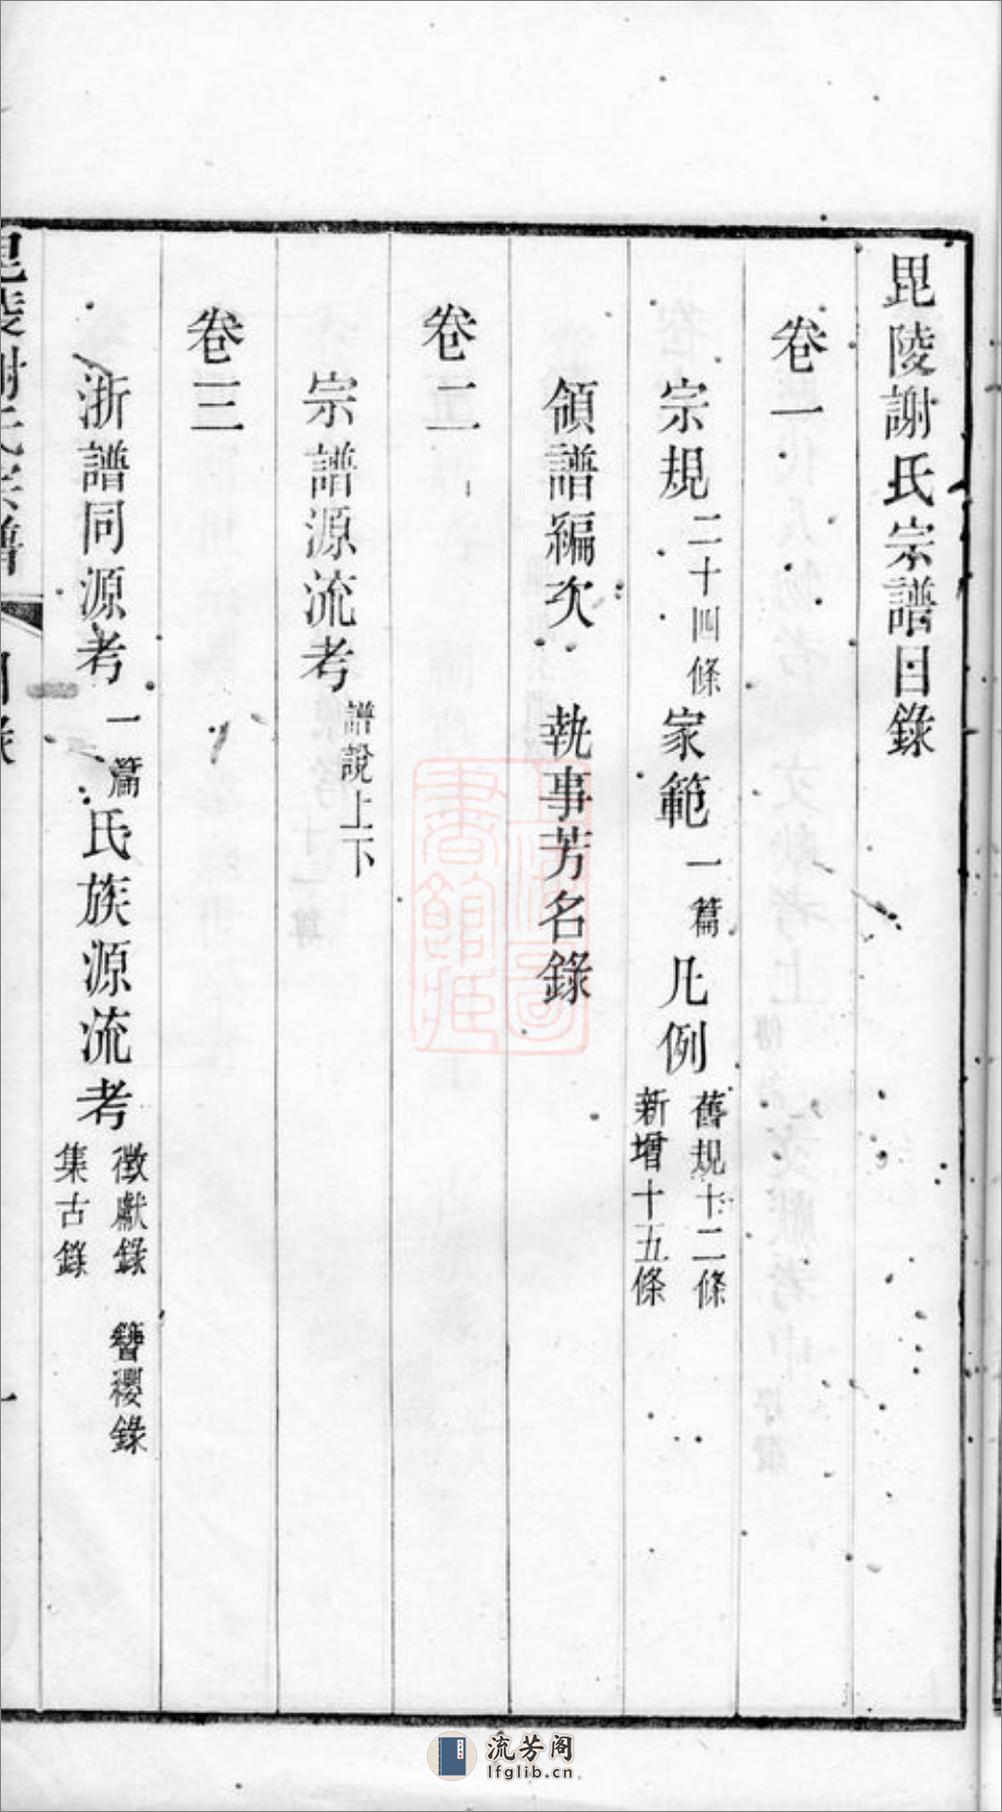 毘陵謝氏宗譜目錄
卷一
宗規二十四條 家範一篇 凡例舊規十二條 新增十五條
領譜編次 執事芳名錄
卷二
宗譜源流考譜說上下
卷三
浙譜同源考一篇 氏族源流考徵獻錄 簪纓錄 集古錄
毘陵謝氏宗譜 目錄 一
流芳阁
lfglib.cn